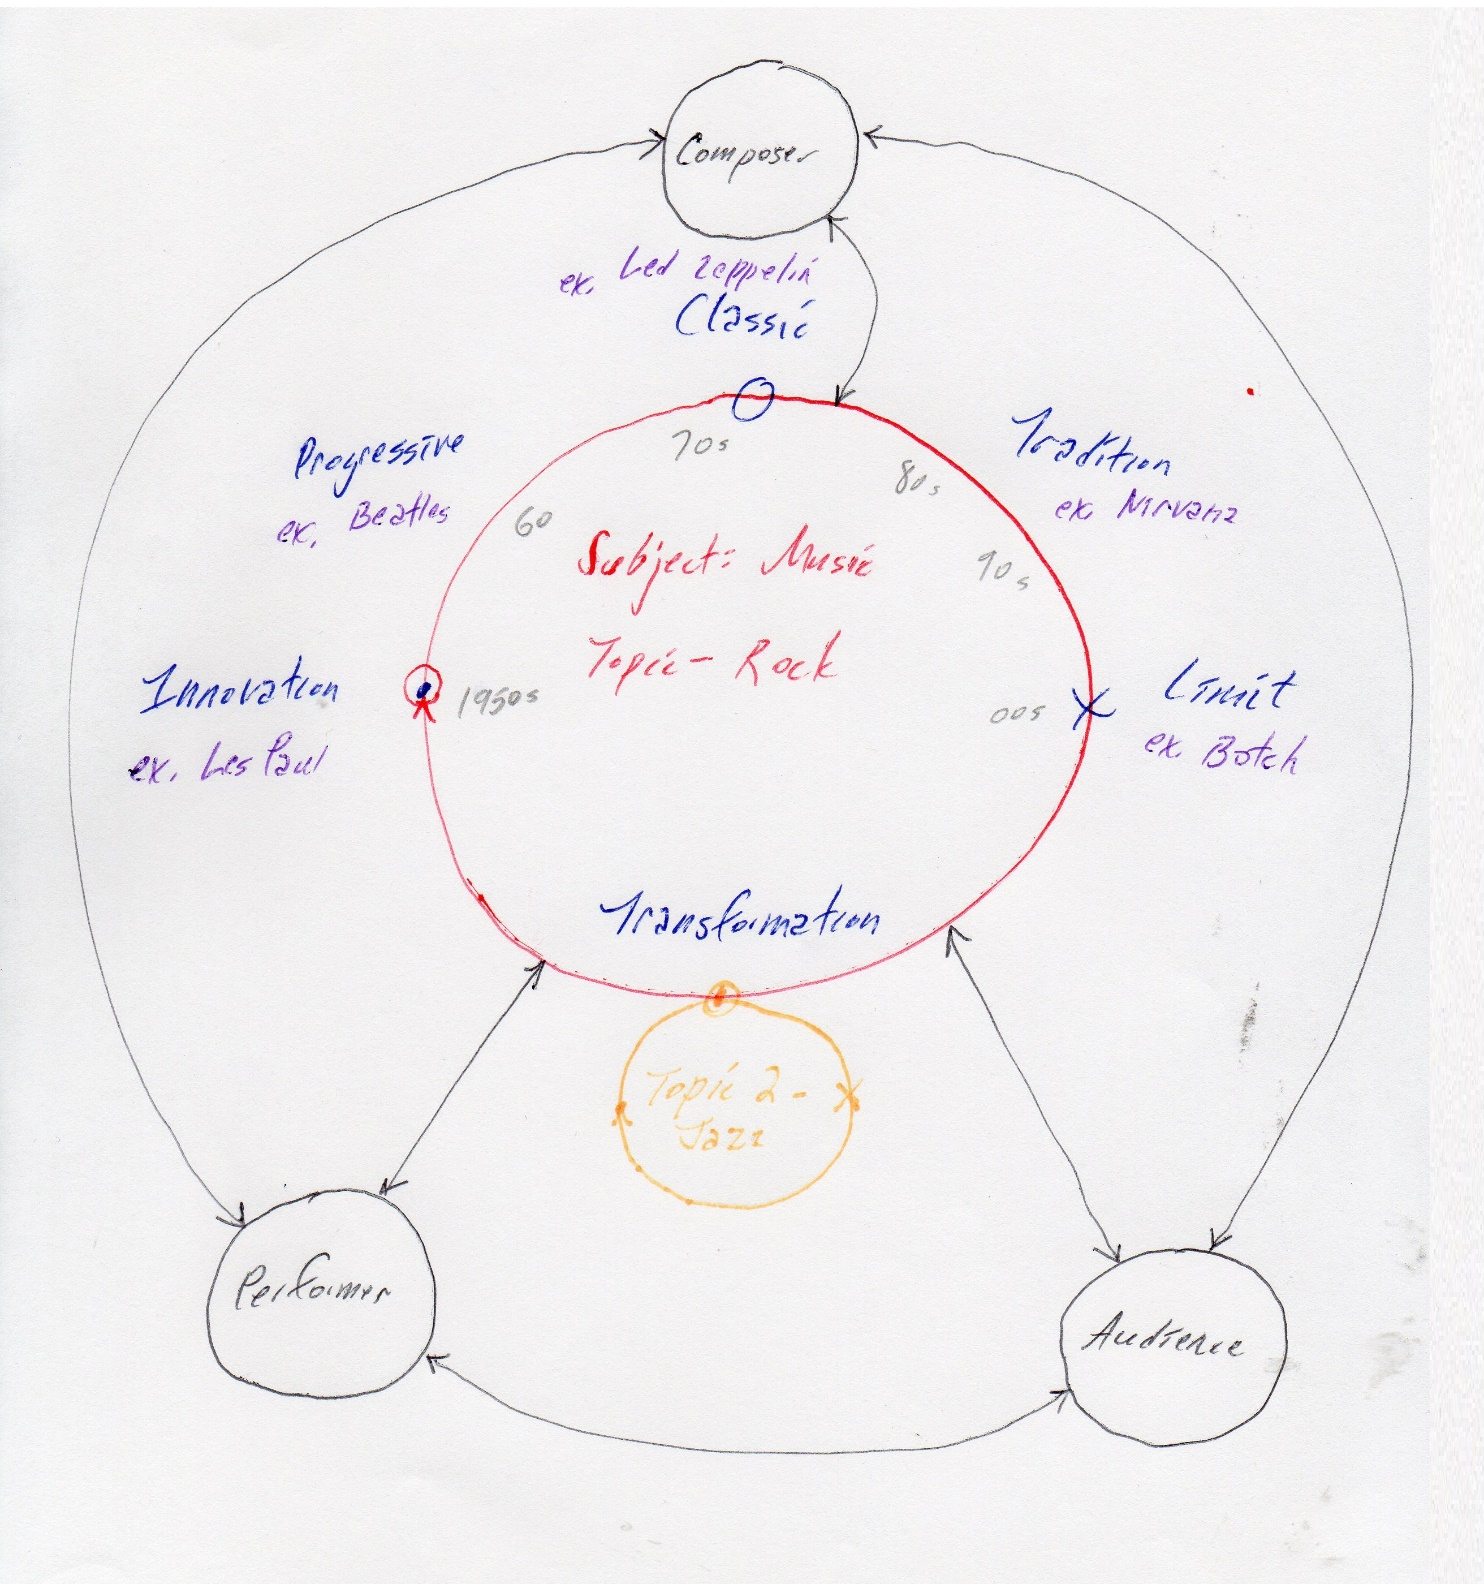 Composer
ex. Led Zeppelin
Classic
Progressive
ex. Beatles
70s
80s
Tradition
ex. Nirvana
60
Subject: Music
90s
Topic - Rock
Innovation
ex. Les Paul
1950s
00s
Limit
ex. Botch
Transformation
Topic 2 -
Jazz
Performer
Audience